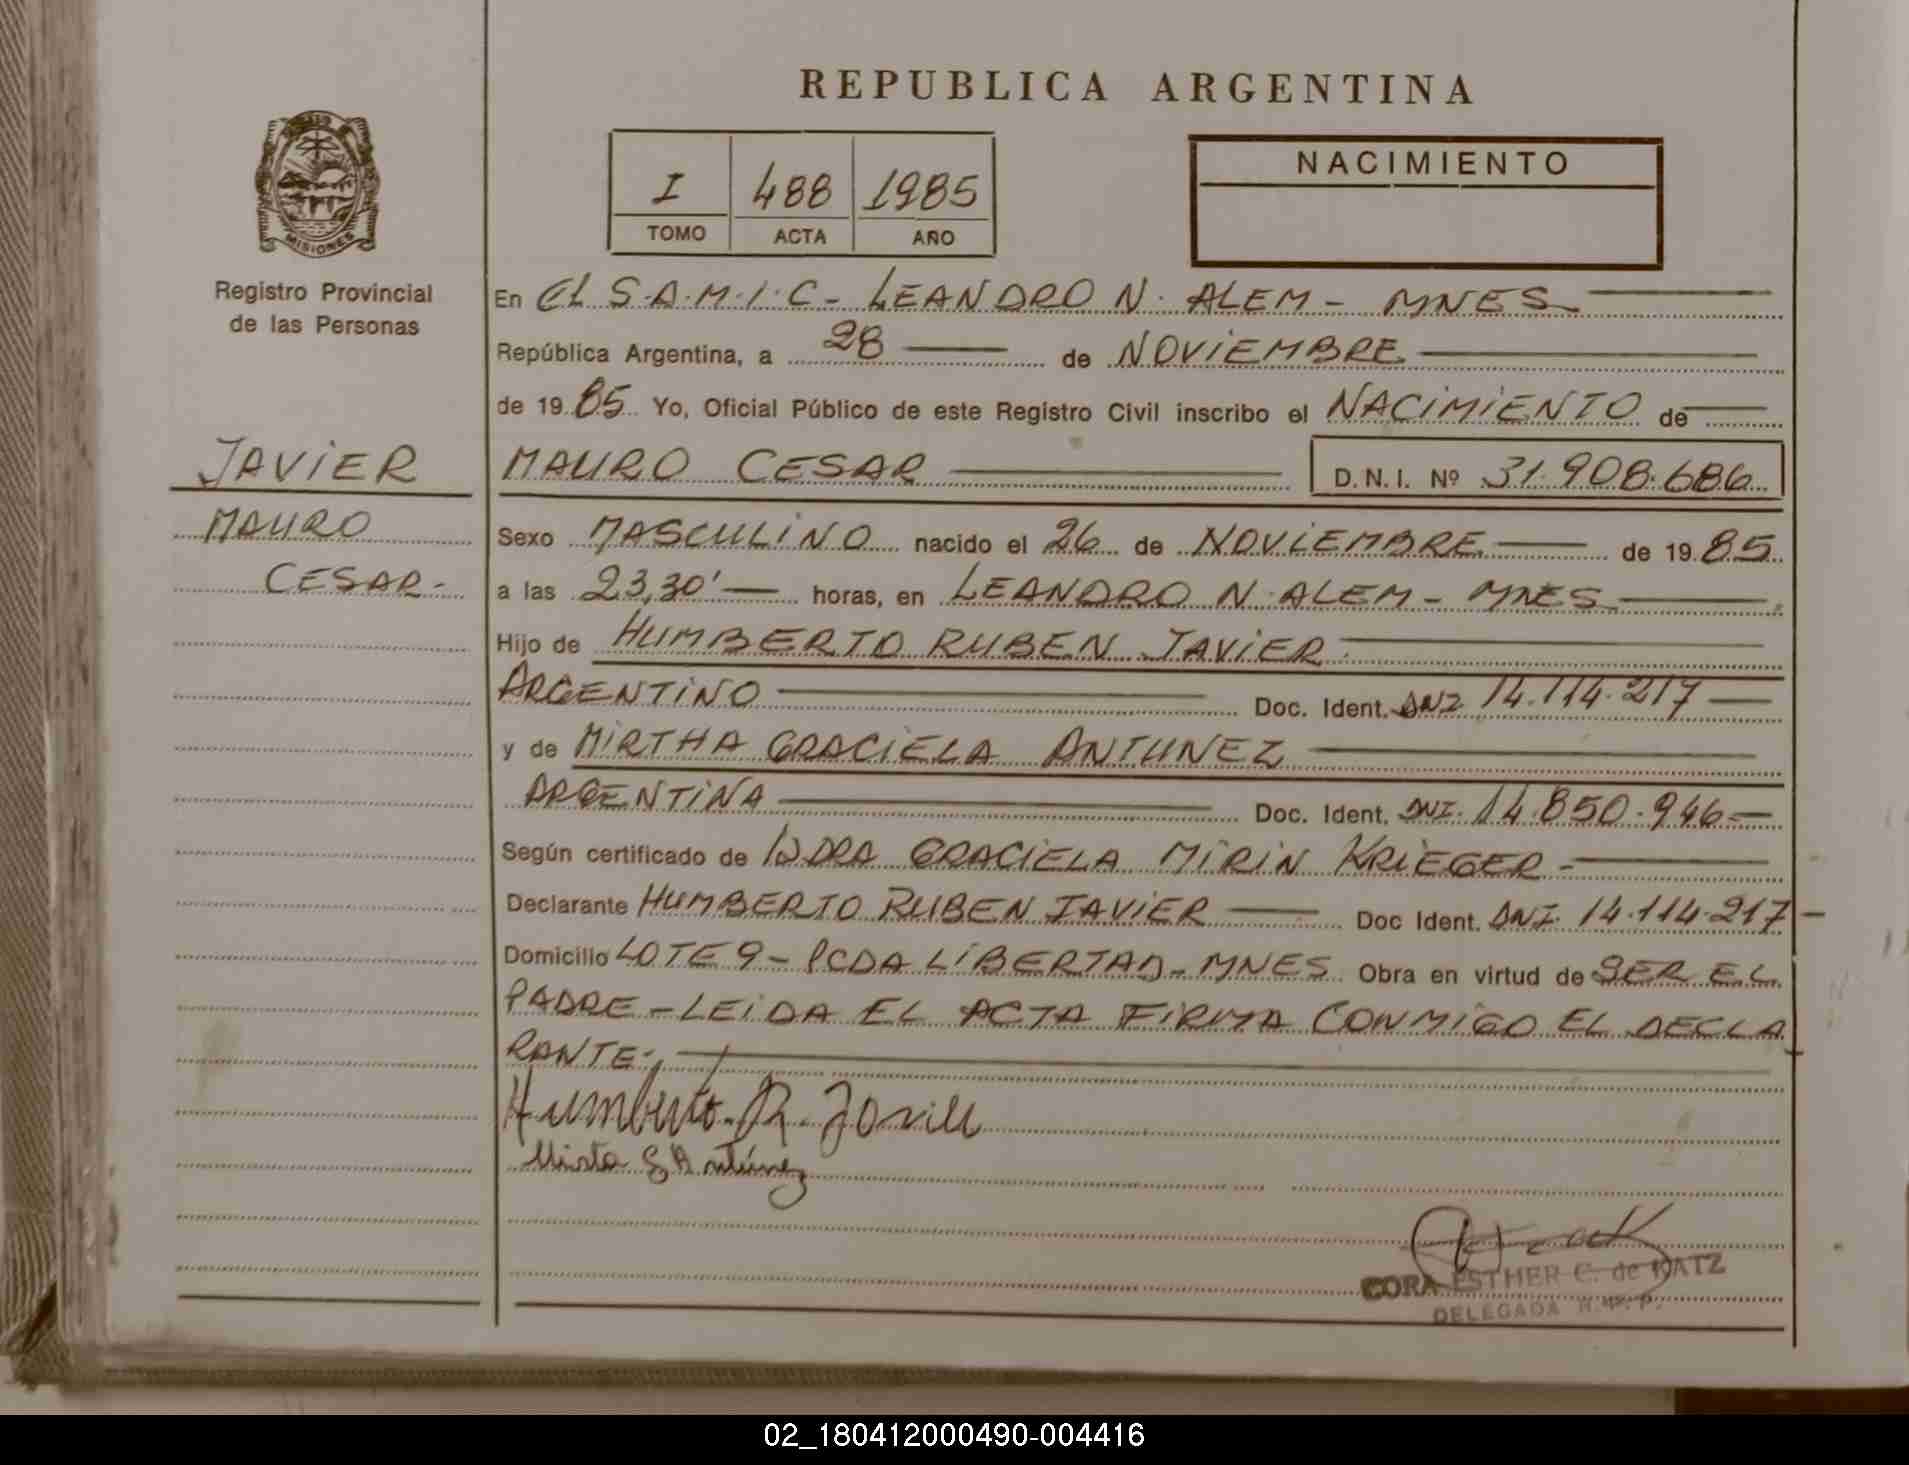 REPUBLICA ARGENTINA
MISIONES
Registro Provincial
de las Personas
I 488 1985
TOMO ACTA AÑO
NACIMIENTO
En EL S.A.M.I.C - LEANDRO N. ALEM - MNES
República Argentina, a 28 de NOVIEMBRE
de 1985 Yo, Oficial Público de este Registro Civil inscribo el NACIMIENTO de
JAVIER
MAURO
CESAR -
MAURO CESAR D.N.I. Nº 31.908.686
Sexo MASCULINO nacido el 26 de NOVIEMBRE de 1985
a las 23,30' horas, en LEANDRO N. ALEM - MNES
Hijo de HUMBERTO RUBEN JAVIER
ARGENTINO Doc. Ident. DNI 14.114.217
y de MIRTHA GRACIELA ANTUNEZ
ARGENTINA Doc. Ident. DNI. 14.850.946
Según certificado de DRA GRACIELA MIRIN KRIEGER -
Declarante HUMBERTO RUBEN JAVIER Doc Ident. DNI. 14.114.217 -
Domicilio LOTE 9 - PCDA LIBERTAD - MNES Obra en virtud de SER EL
PADRE - LEIDA EL ACTA FIRMA CONMIGO EL DECLA
RANTE -
Humberto R. Javier
Mirta G Antúnez
CORA ESTHER C. de KATZ
DELEGADA R. P.
02_180412000490-004416